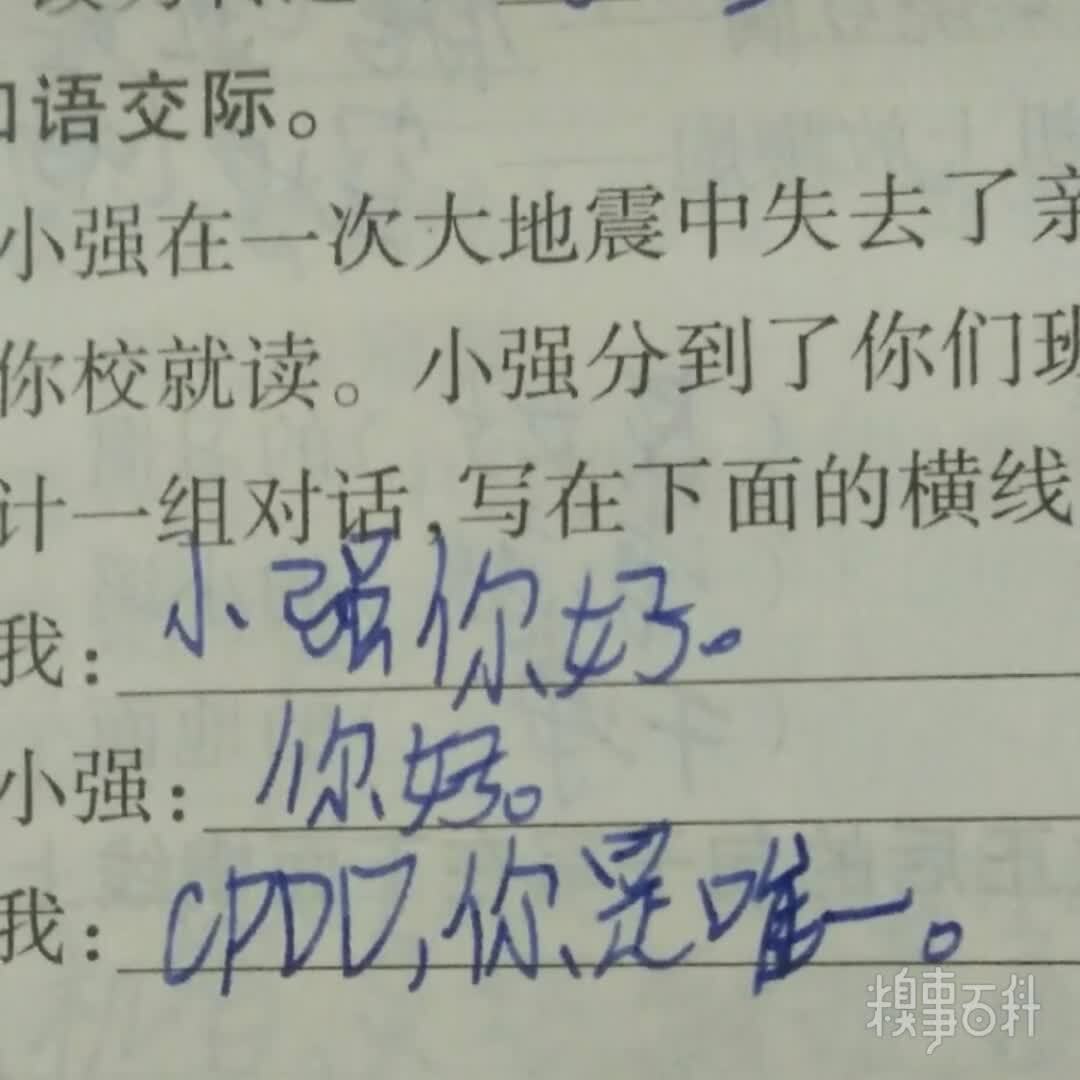 口语交际。
小强在一次大地震中失去了亲
你校就读。小强分到了你们班
计一组对话,写在下面的横线
我:小强你好。
小强:你好。
我:CPDD,你是唯一。
糗事百科